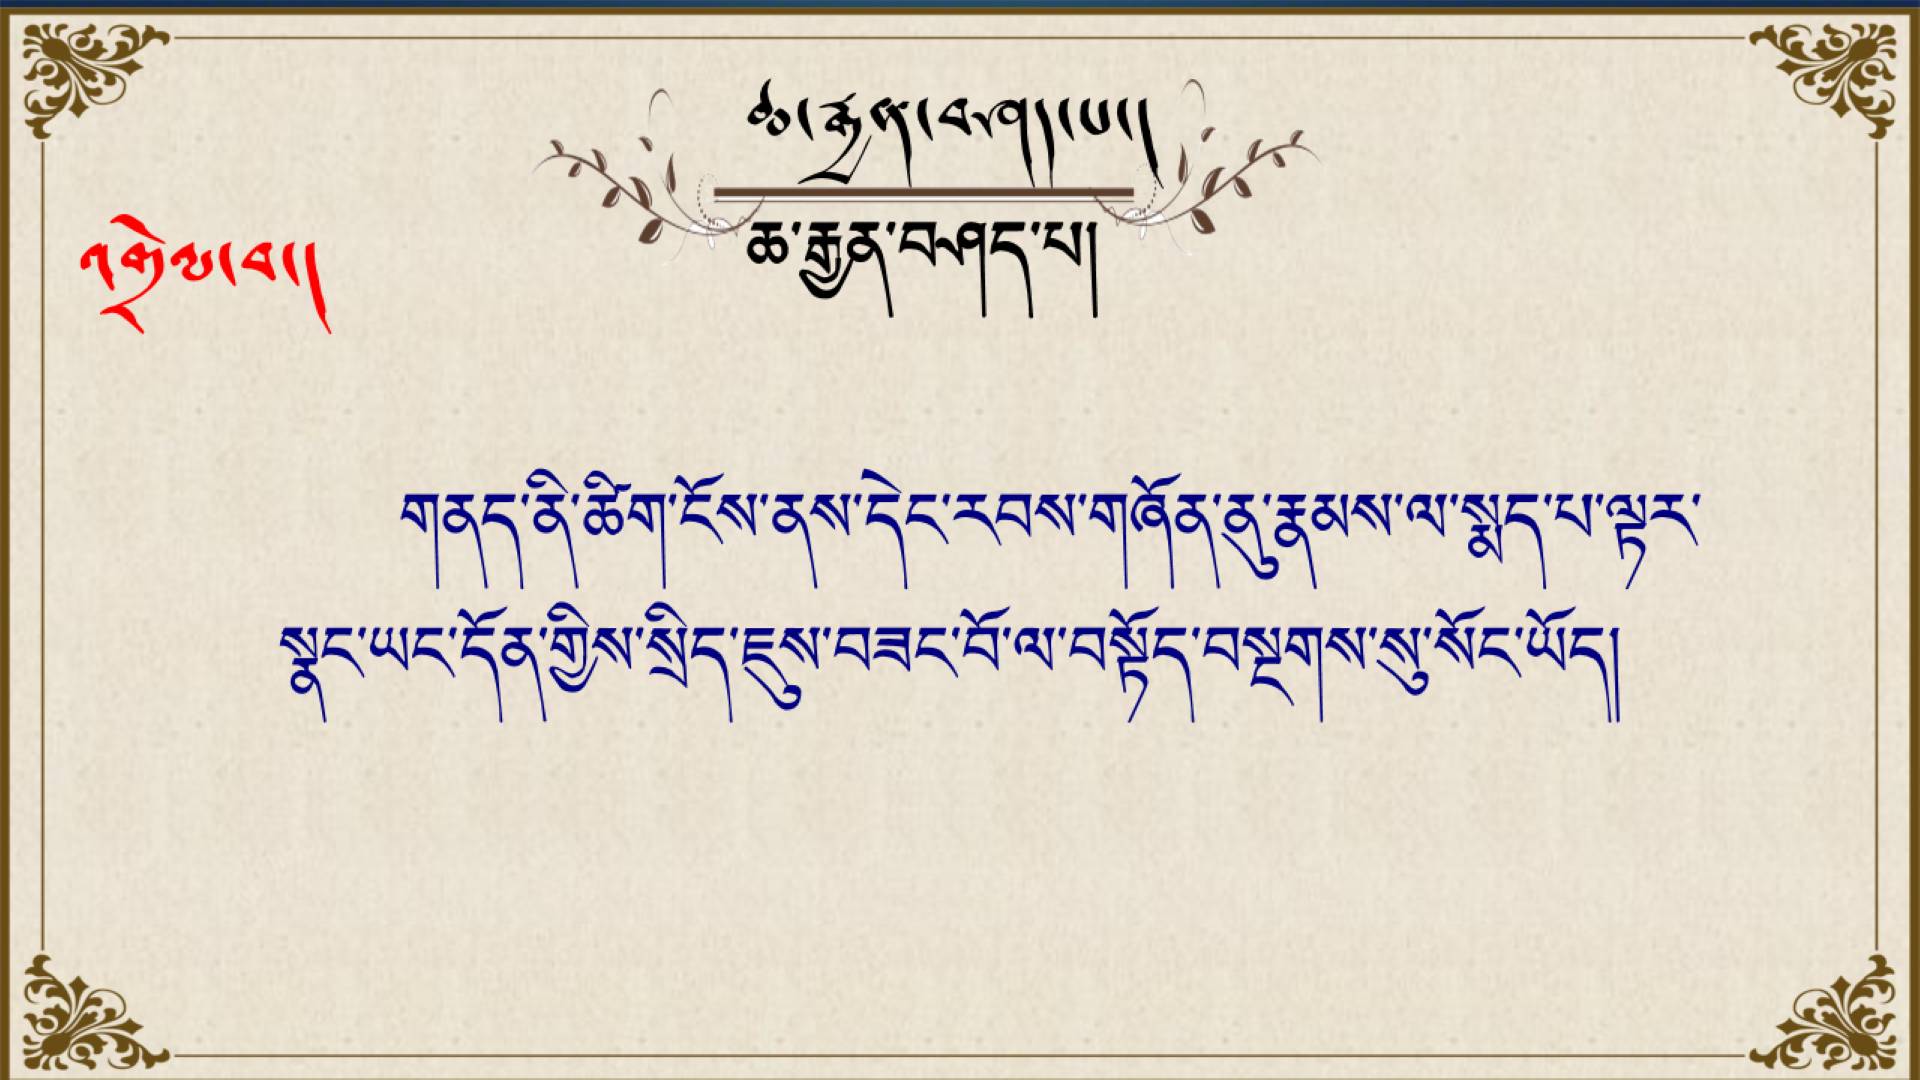 ཆ་རྒྱན་བཤད་པ།
ཆ་རྒྱན་བཤད་པ།
འགྲེལ་བ།
གནད་ནི་ཚིག་ངོས་ནས་དེང་རབས་གཞོན་ནུ་རྣམས་ལ་སྨད་པ་ལྟར་
སྣང་ཡང་དོན་གྱིས་སྲིད་ཇུས་བཟང་བོ་ལ་བསྟོད་བསྔགས་སུ་སོང་ཡོད།